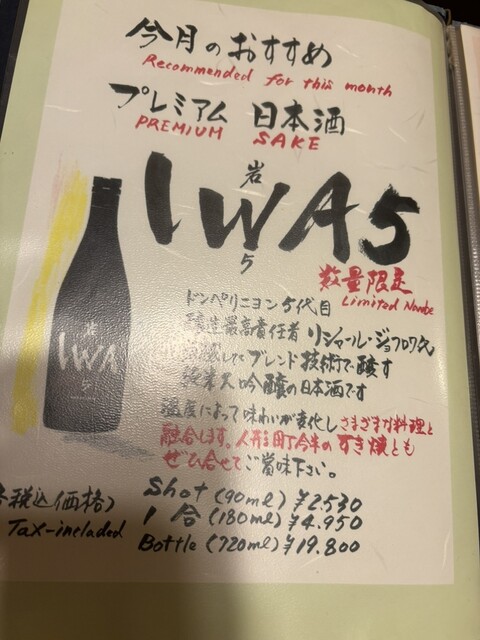 今月のおすすめ
Recommended for this month
プレミアム 日本酒
PREMIUM SAKE
岩
IWA5
5
数量限定
Limited
ドンペリニヨン5代目
醸造最高責任者 リシャール・ジョフロワ氏
ブレンド技術で醸す
純米大吟醸の日本酒です
温度によって味わいが変化しさまざまな料理と
融合します。人形町今半のすき焼とも
ぜひ合せてご賞味下さい。
岩
IWA
5
税込価格)
Tax-included
Shot (90ml) ¥2.530
1合 (180ml) ¥4.950
Bottle (720ml) ¥19.800